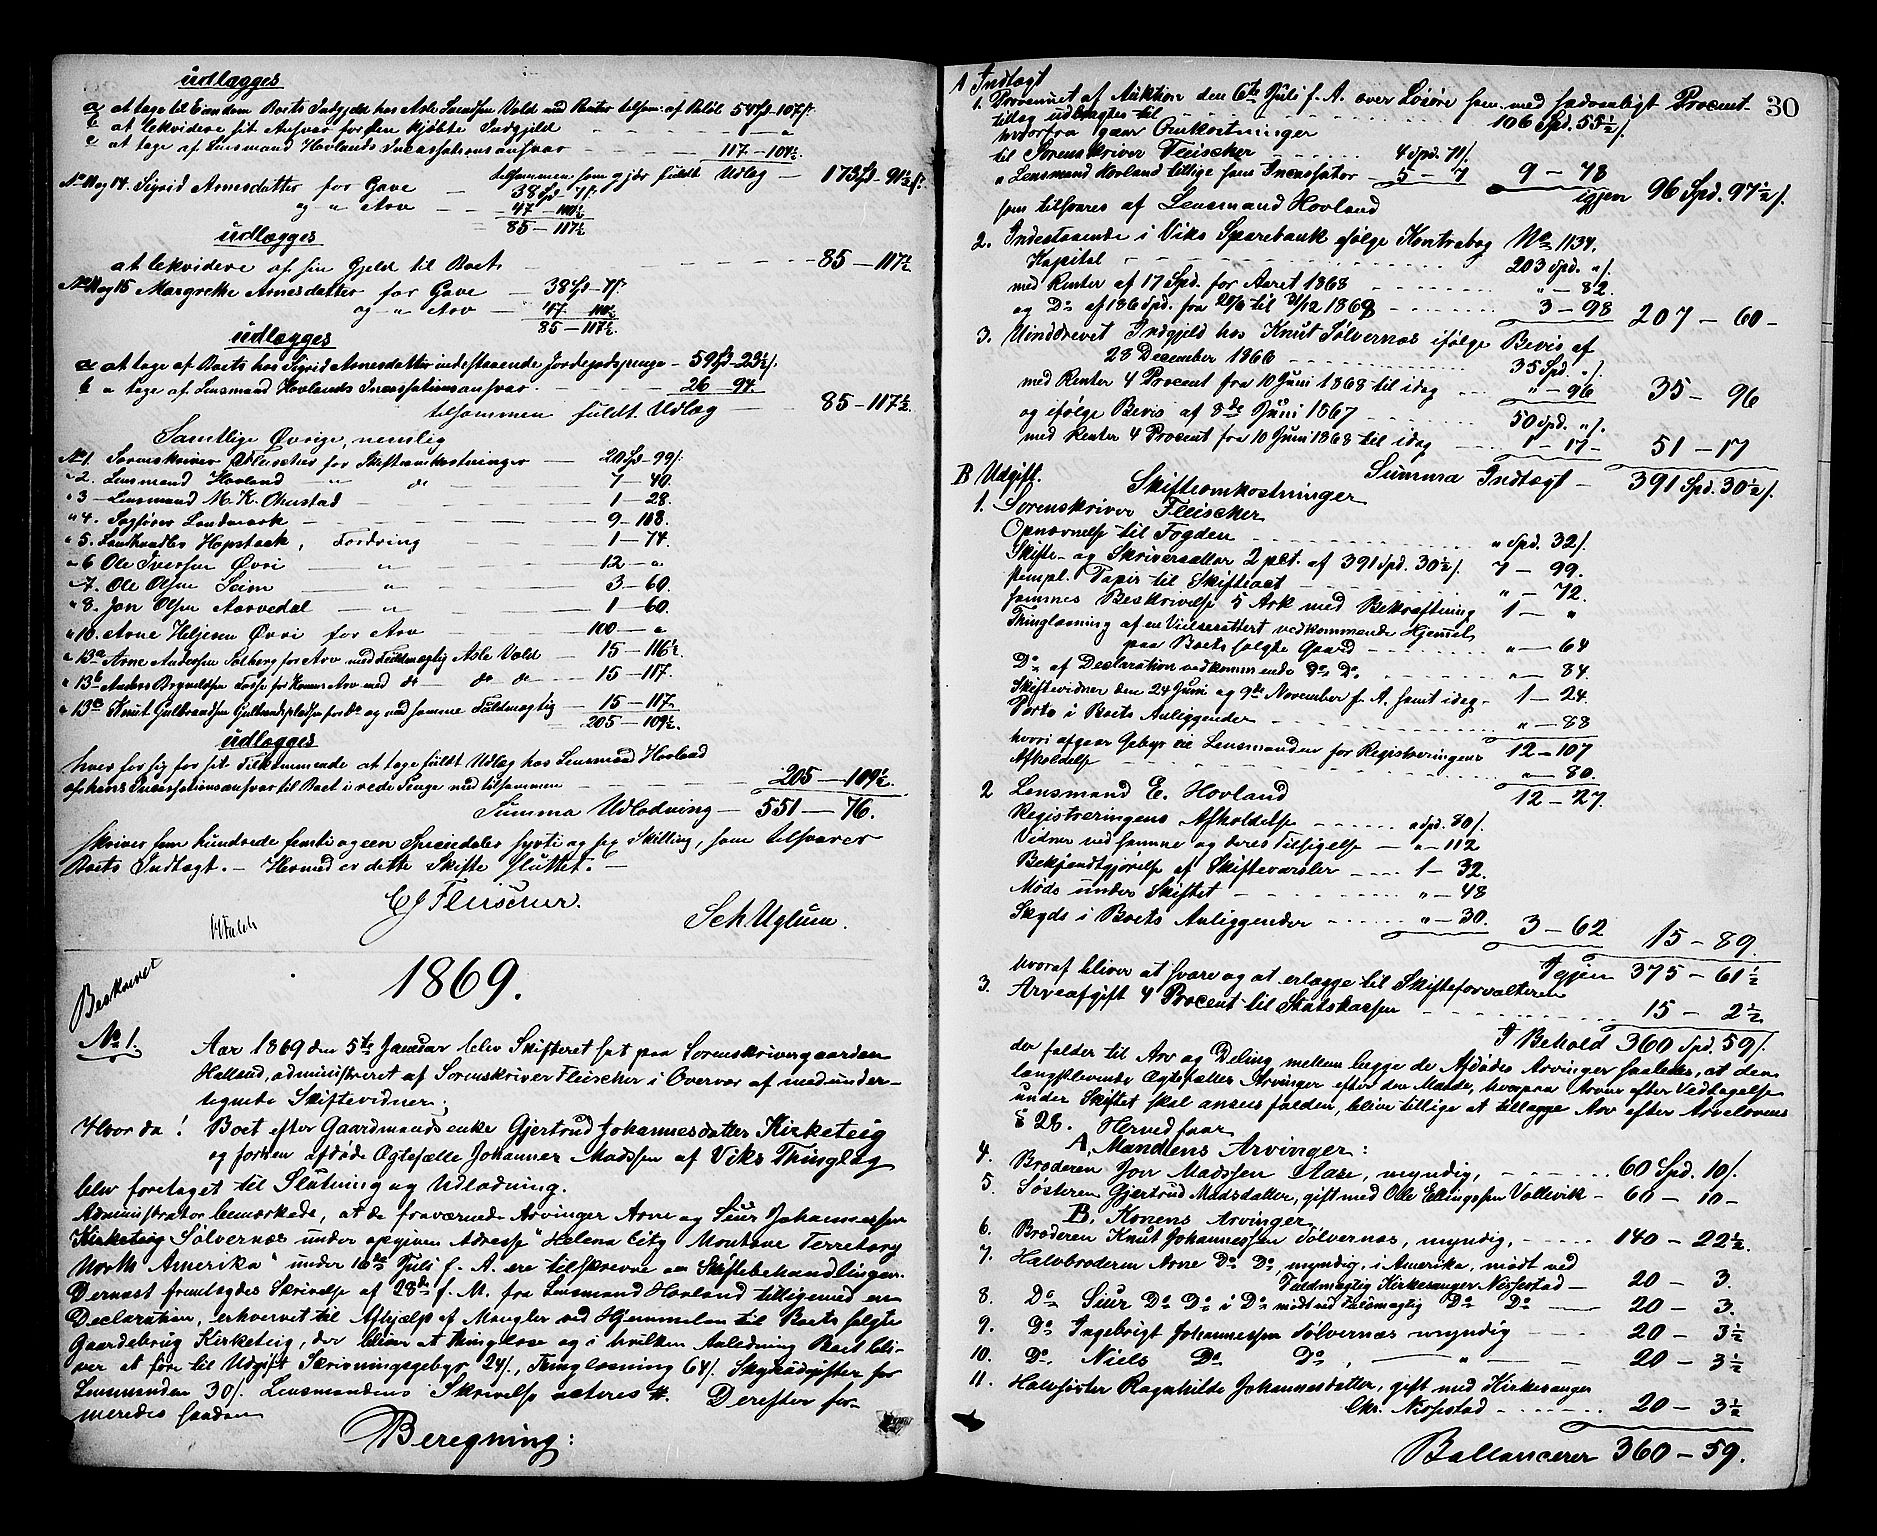 udlægges
a at tage til Eiendom Boets Indgjeld hos Asle Svendsen Vold med Renter tilsam. af Beløb 54 Sp-107 ſ.
b at likvidere sit Ansvar for den kjøbte Indgjeld - - - - " - "
c at tage af Lensmand Hovlands Incassationsansvar - - - 117-104½
tilsammen som gjør fuldt Udlæg - 173 Sp-91½ ſ.
No 11 og 14. Sigrid Arnesdatter for Gave - 38 Sp-7 ſ.
og " Arv - - 47-110½
85-117½
udlægges
at likvidere af sin Gjeld til Boet - - - - 85-117½
No 11 og 15 Margrethe Arnesdatter for Gave - 38 Sp-7 ſ.
og " Arv - 47 110½
85-117½
udlægges
a at tage af Boets hos Sigrid Arnesdatter indestaaende Jordegodspenge - 59 Sp-23½ ſ.
b " tage af Lensmand Hovlands Incassationsansvar - - - 26-94.
tilsammen fuldt Udlæg - - 85-117½
Samtlige Øvrige, nemlig
No 1. Sorenskriver Fleischer for Skifteomkostninger - 20 Sp-99 ſ.
" 2. Lensmand Hovland " do - 7-40.
" 3 - Lensmand M. K. Ohnstad - - - 1-28.
" 4. Sagfører Landmark - - - 9-108.
" 5. Landhandler Hopstock, Fordring - - 1-74.
" 6 Ole Iversen Øvri - " - 12-"
" 7. Ole Olsen Seim - " - 3-60.
" 8. Jon Olsen Aarvedal - " - 1-60.
" 10. Arne Heljesen Øvri for Arv - - 100-"
" 13a Arne Andersen Solberg for Arv med Fuldmægtig Asle Vold - 15-116½.
" 13b Anders Brynildsen Fosse for Konens Arv med do - do do - 15-117.
" 13c Knut Gulbrandsen Gulbrandspladsen for do og ved samme Fuldmægtig - 15-117
205-109½
udlægges
hver for sig for sit Tilkommende at tage fuldt Udlæg hos Lensmand Hovland
af hans Incassationsansvar til Boet i rede Penge med tilsammen - - - 205-109½.
Summa Udlodning - 551-76.
skriver fem hundrede femti og een Speciedaler sytti og sex Skilling, som tilsvarer
Boets Indtægt. - Hermed er dette Skifte sluttet. -
CJ Fleischer.
Sch. Uglum.
Beskrevet
1869.
No 1.
Aar 1869 den 5te Januar blev Skifteret sat paa Sorenskrivergaarden
Helland, administreret af Sorenskriver Fleischer i Overvær af medunder-
tegnede Skiftevidner;
Hvor da! Boet efter Gaardmandsenke Gjertrud Johannesdatter Kirketeig
og forhen afdøde Ægtefælle Johannes Madssen af Viks Thinglag
blev foretaget til Slutning og Udlodning.
Administrator bemærkede, at de fraværende Arvinger Arne og Siur Johannessen
Kirketeig Sølvernæs under opgiven Adresse "Helena City Montana Territory
North Amerika" under 16de Juli f. A. ere tilskrevne om Skiftebehandlingen.
Dernæst fremlagdes Skrivelse af 28de f. M. fra Lensmand Hovland tilligemed en
Declaration, erhvervet til Afhjælp af Mangler ved Hjemmelen til Boets solgte
Gaardebrug Kirketeig, der bliver at thinglæse og i hvilken Anledning Boet bli-
ver at føre til Udgift Skrivningsgebyr 24 ſ., Thinglæsning 64 ſ. Skydsudgifter for
Lensmanden 30 ſ. Lensmandens Skrivelse vateres #. Derefter for-
meredes saadan
Beregning:
30
A Indtægt
1. Provenuet af Auktion den 6te Juli f. A. over Løsøre sam. med sædvanligt Procent-
tillæg udbragtes til - - - - 106 Spd. 55½ ſ.
hvorfra gaar Omkostninger
til Sorenskriver Fleischer - - - - 4 Spd. 71 ſ.
" Lensmand Hovland tillige som Incassator - 5-7 9-78
igjen 96 Spd. 97½ ſ.
som tilsvares af Lensmand Hovland
2. Indestaaende i Viks Sparebank ifølge Kontrabog No 1134.
Kapital - - - - 203 Spd. " ſ.
med Renter af 17 Spd. for Aaret 1868 - - - " - 82.
og Do af 186 Spd. fra 20/8 til 31/12 1868 - - - 3-98 207-60-
3. Uinddrevet Indgjeld hos Knut Sølvernæs ifølge Bevis af
28 December 1866 - - - - 35 Spd. " ſ.
med Renter 4 Procent fra 10 Juni 1868 til idag - - - " - 96 35-96
og ifølge Bevis af 8de Juni 1867 - - - 50 Spd. " ſ.
med Renter 4 Procent fra 10 Juni 1868 til idag - - - 1-17- 51-17
Summa Indtægt - 391 Spd. 30½ ſ.
B Udgift.
Skifteomkostninger
1. Sorenskriver Fleischer
Opnævnelse til Fogden - - - - " Spd. 32 ſ.
Skifte- og Skriversalær 2 pCt. af 391 Spd. 30½ ſ. 7-99.
stempl. Papir til Skifteact - - - - " - 72.
sammes Beskrivelse 5 Ark med Bekræftning 1-"
Thinglæsning af en Vielsesattest vedkommende Hjemmel
paa Boets solgte Gaard - - - - " - 64
Do af Declaration vedkommende Do Do - - - " - 84.
Skiftevidner den 24 Juni og 9de November f. A. samt idag - 1-24.
Porto i Boets Anliggender - - - - " - 88
12-107
hvori afgaar Gebyr til Lensmanden for Registreringens
Afholdelse - - - - " - 80.
12-27.
2 Lensmand E. Hovland
Registreringens Afholdelse - - - - " Spd. 80 ſ.
Vidner ved samme og deres Tilsigelse - " - 112
Bekjendtgjørelse af Skiftevarsler - - 1-32.
Møde under Skiftet - - - - " - 48
Skyds i Boets Anliggender - - - " - 30. 3-62 15-89.
Igjen 375-61½
hvoraf bliver at svare og at erlægge til Skifteforvalteren
3. Arveafgift 4 Procent til Statskassen - - - - 15-2½
I Behold 360 Spd. 59 ſ.
der falder til Arv og Deling mellem begge de Afdødes Arvinger saaledes, at den
længstlevende Ægtefælles Arvinger efter den Maade, hvorpaa Arven efter Vedtagelse
under Skiftet skal ansees falden, blive tillige at tillægge Arv efter Arvelovens
§ 28. Herved faar
A. Mandens Arvinger:
4. Broderen Jon Madssen Aase, myndig, - - - - 60 Spd. 10 ſ.
5. Søsteren Gjertrud Madsdatter, gift med Ole Ellingssen Vallevik - 60-10-
B. Konens Arvinger
6. Broderen Knut Johannessen Sølvernæs, myndig, - - - - 140-22½.
7. Halvbroderen Arne Do Do, myndig, i Amerika, mødt ved
Fuldmægtig Kirkesanger Nissestad - 20-3.
8. Do Siur Do Do i Do mødt ved Fuldmægtig Do Do - 20-3.
9. Do Ingebrigt Johannessen Sølvernæs myndig - - - - 20-3½
10. Do, Niels Do Do, - " - 20-3½
11. Halvsøster Ragnhilde Johannesdatter, gift med Kirkesanger
Chr. Nissestad - - - - 20-3½
Ballancerer 360-59.